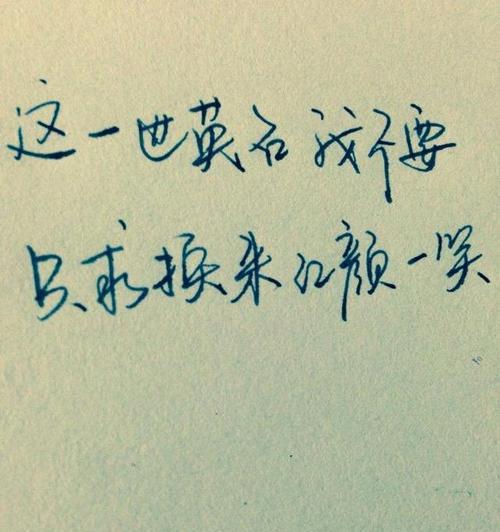 这一世英名我不要
只求换来红颜一笑